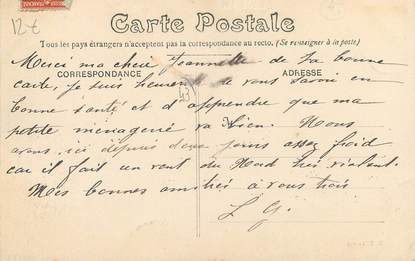 12€
Carte Postale
Tous les pays étrangers n'acceptent pas la correspondance au recto. (Se renseigner à la poste)
Merci ma chère Jeannette de ta bonne
CORRESPONDANCE ADRESSE
carte, je suis de vous savoir en
bonne santé et d'apprendre que ma
petite ménagerie va bien. Nous
avons ici depuis deux jours assez froid
car il fait un vent du Nord très violent.
Mes bonnes amitiés à vous trois
L G.